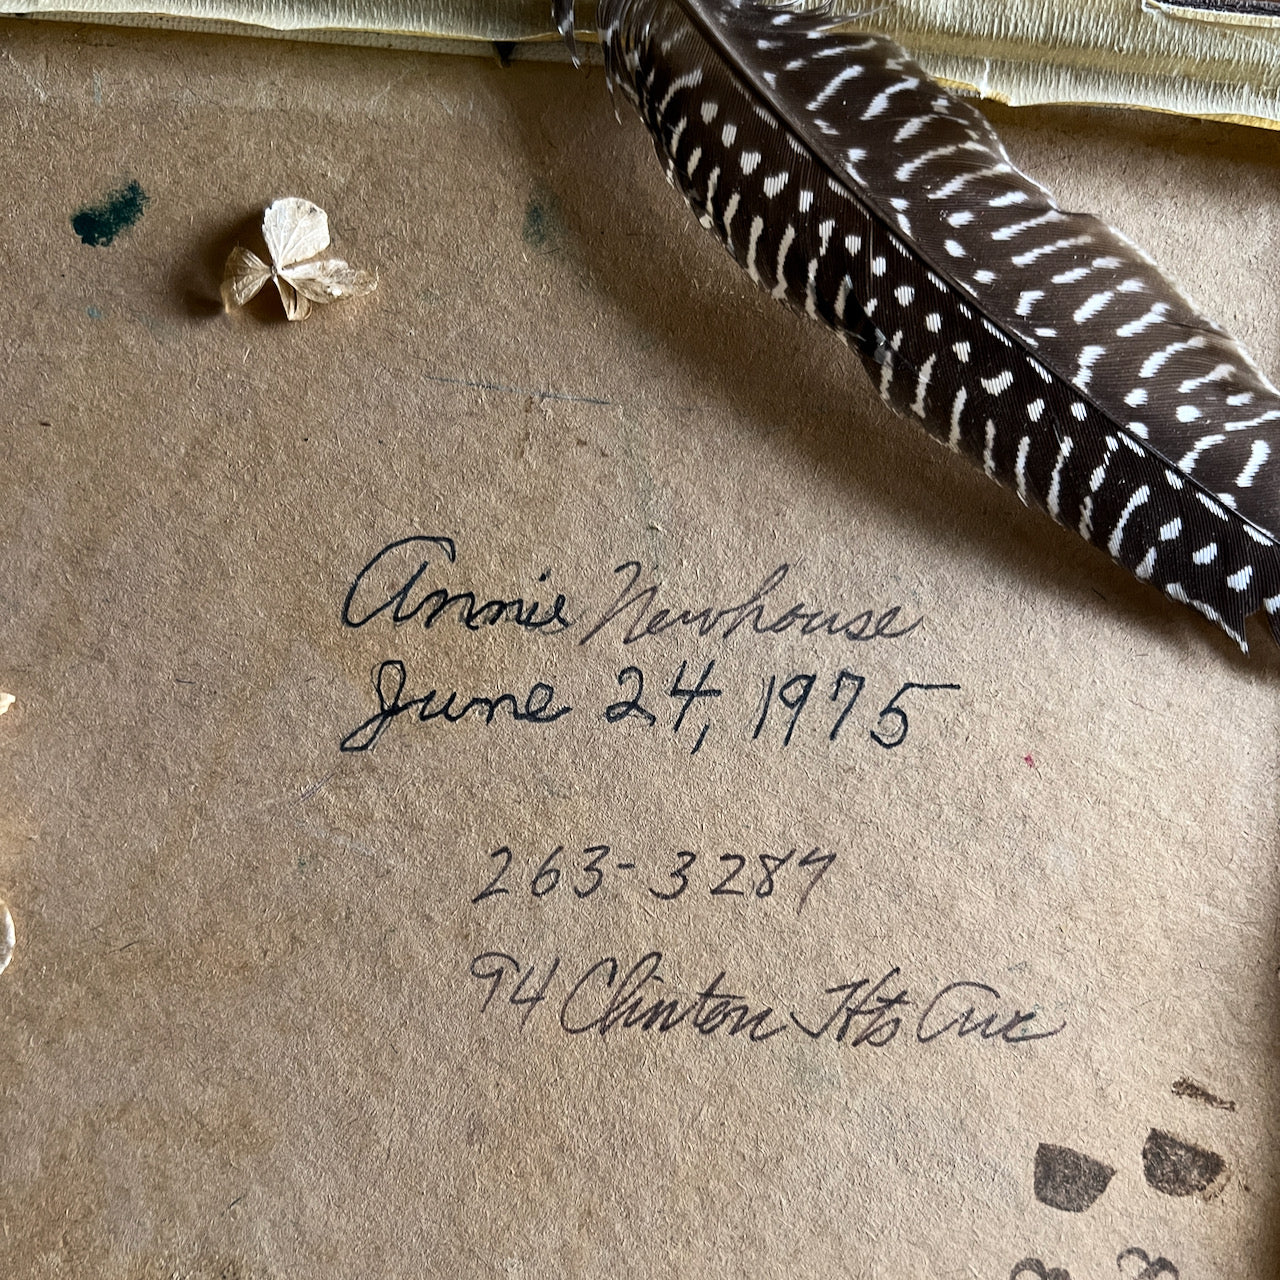 Annie Newhouse
June 24, 1975
263-3287
94 Clinton Hts Ave